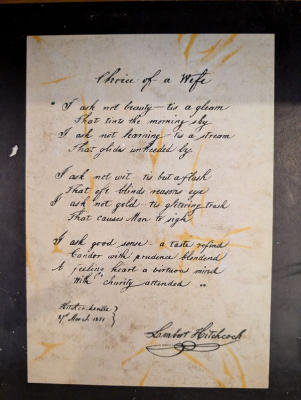 Choice of a Wife
" I ask not beauty - tis a gleam
That tints the morning sky
I ask not learning - tis a stream
That glides unheeded by
I ask not wit - tis but a flash
That oft blinds reasons eye
I ask not gold - tis glittering trash
That causes Man to sigh
I ask good sense - a taste refind
Candor with prudence blendend
A feeling heart a virtuous mind
With charity attended "
Hitchcocksville
March 1831
Lambert Hitchcock